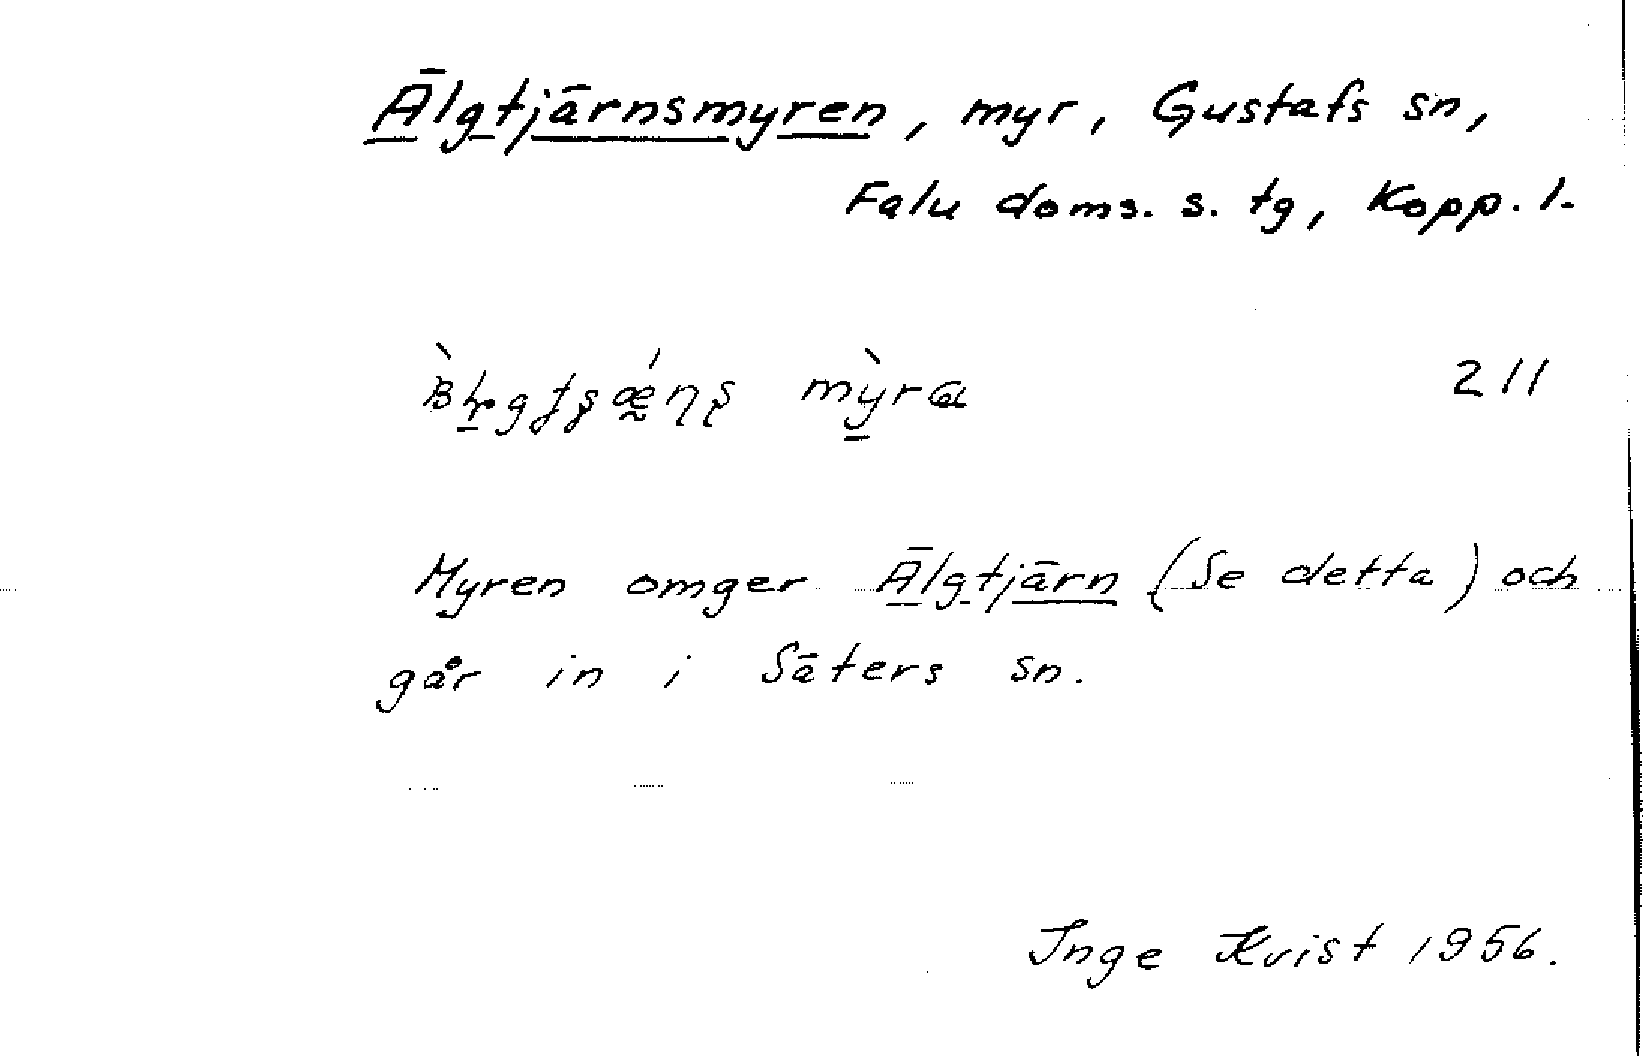 Älgtjärnsmyren, myr, Gustafs sn,
Falu doms. s. tg, Kopp. l.
mỳra 211
Myren omger Älgtjärn (Se detta) och
går in i Säters sn.
Inge Kvist 1956.